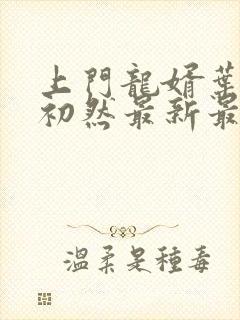 上門龍婿葉
初然最新最
溫柔是種毒